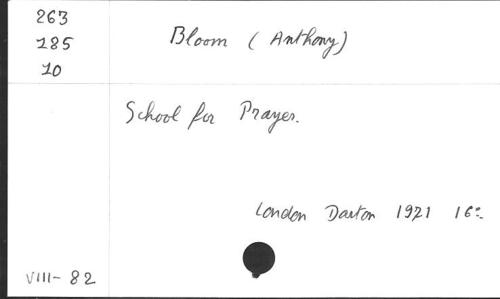 263
185
10
Bloom (Anthony)
School for Prayer.
London Darton 1971 16º
VIII-82